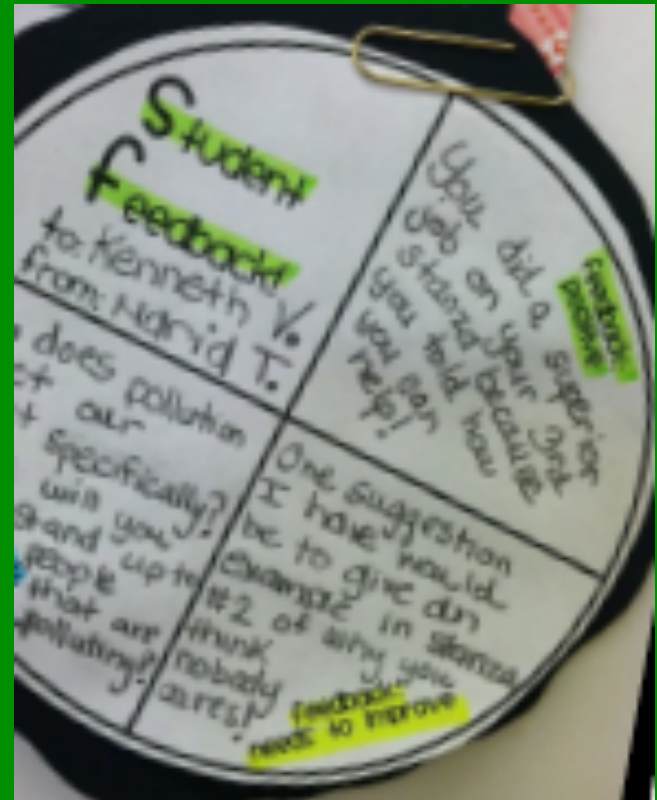 Student
Feedback
to: Kenneth V.
from: T.
Feedback:
positive
You did a superior
job on your 3rd
stanza because
you told how
you can
help!
does pollution
our
specifically?
will you
stand up to
people
that are
polluting?
One suggestion
I have would
be to give an
example in stanza
#2 of why you
think
nobody
cares!
feedback:
needs to improve